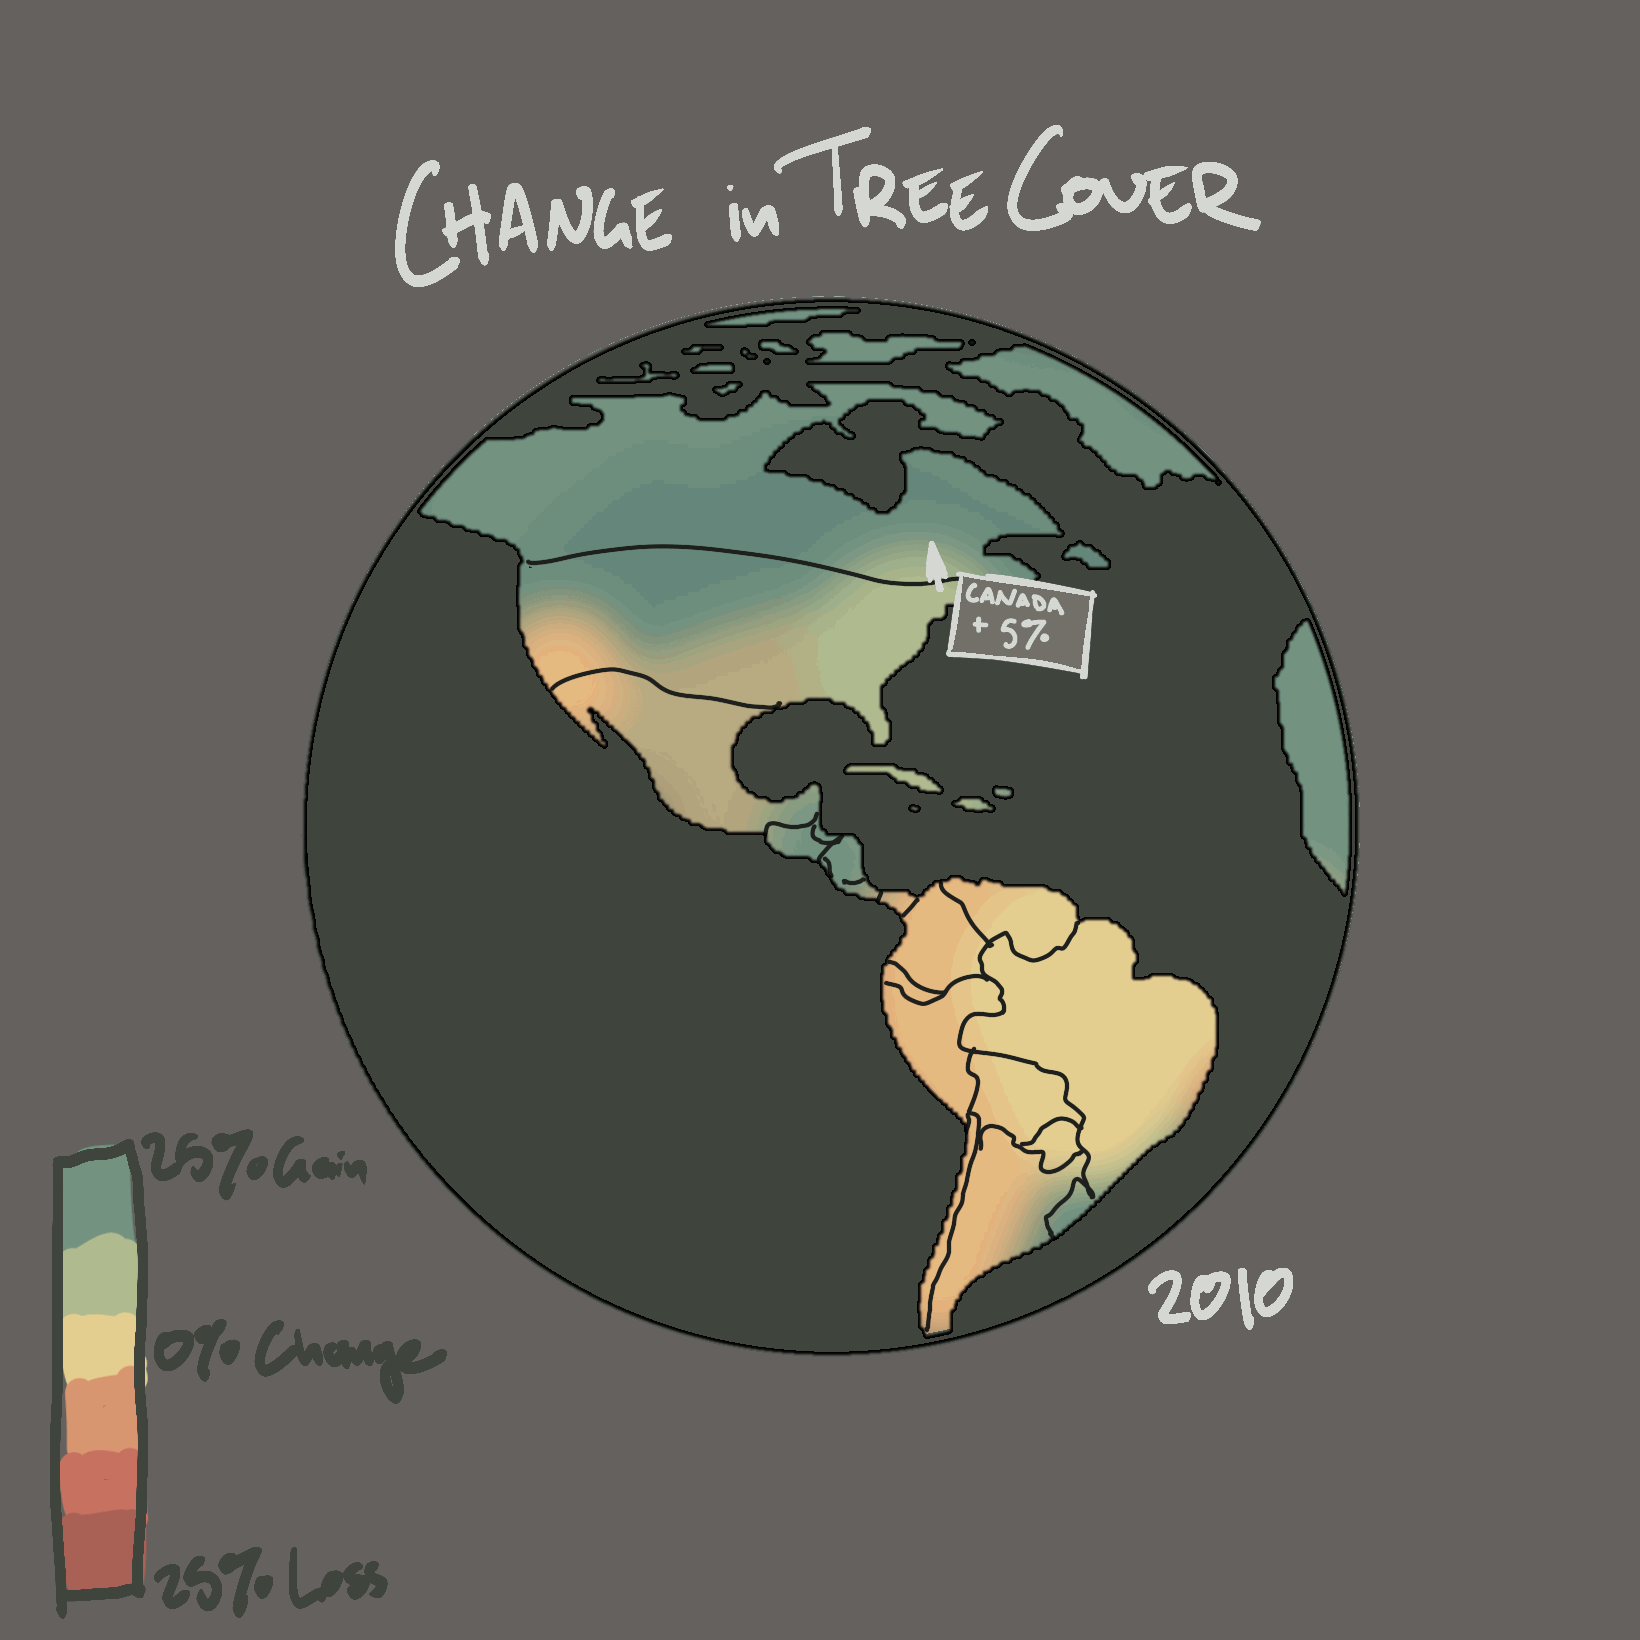 CHANGE in TREE COVER
CANADA
+ 5%
2010
25% Gain
0% Change
25% Loss